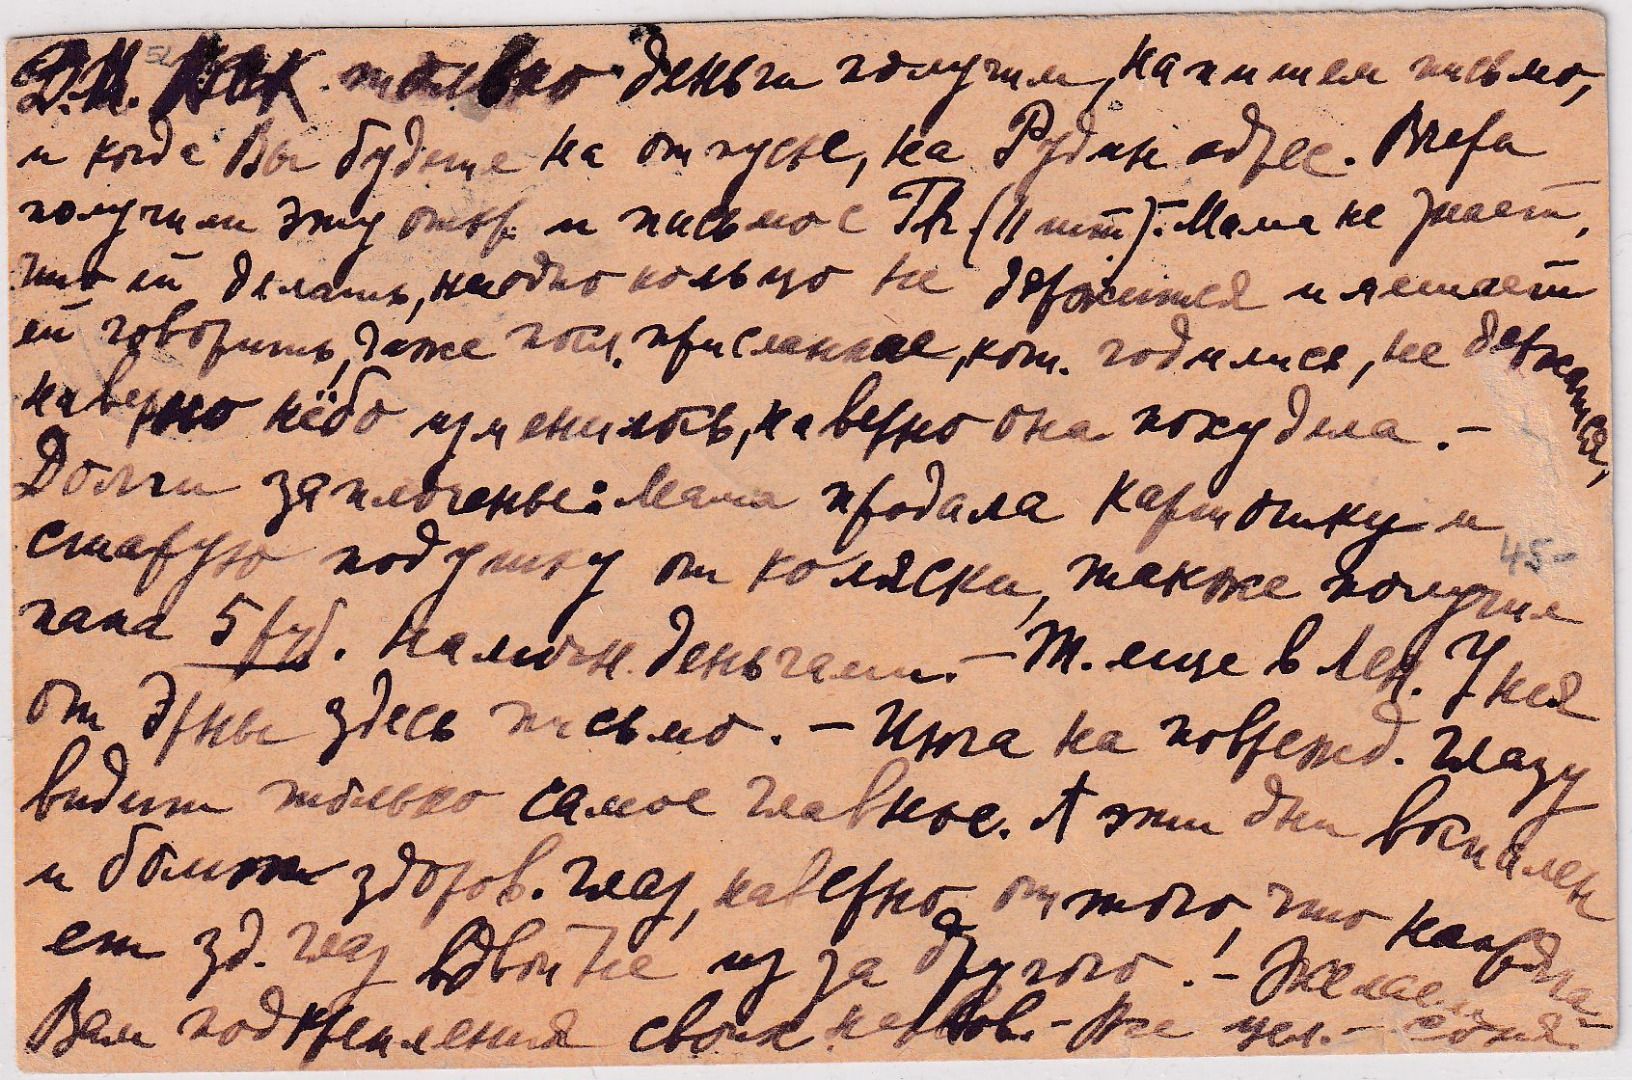 Д.М. Как только деньги получим, напишем письмо,
и когда Вы будете на отпуске, на Рудин адрес. Вчера
получили эту откр. и письмо с (11 шт). Мама не знает,
что ей делать, ни одно кольцо не держится и мешает
ей говорить, даже посл. присланные, кот. годились, не держатся,
наверно нёбо изменилось, наверно она похудела. –
Долги заплочены: Мама продала картошку и
старую подушку от коляски, также получил
папа 5 руб. деньгами. – Т. еще в Лен. У нея
от Эрны здесь письмо. – Инга на поврежд. глазу
видит только самое главное. А эти дни воспален
и болит здоров. глаз, наверно от того, что напряга-
ет зд. глаз вдвойне из за другого! – Желаем
Вам подкрепления своих нервов. – Все цел. – Соня.
45-